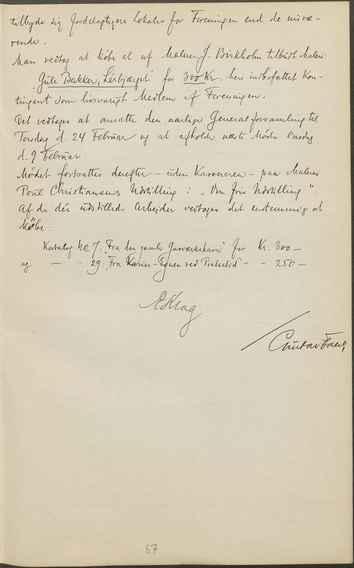 tilbyde sig fordelagtigere Lokaler for Foreningen end de nuvæ-
rende.
Man vedtog at købe et af Maleren J. Birkholm tilbudt Maleri
Gule Bakker, for 300 Kr. heri indbefattet Kon-
tingent som livsvarigt Medlem af Foreningen.
Det vedtoges at ansætte den aarlige Generalforsamling til
Torsdag d. 24 Februar og at afholde næste Møde
d. 9 Februar
Mødet fortsattes derefter – uden Kassereren – paa Maleren
Poul Christiansens Udstilling: "Den frie Udstilling"
Af de dér udstillede Arbejder vedtoges det enstemmig at
købe
Katalog No 7. "Fra den gamle " for Kr. 300 –
og – - 29. "Fra Egnen ved " - - 250 –
E Krag
Gustav
67